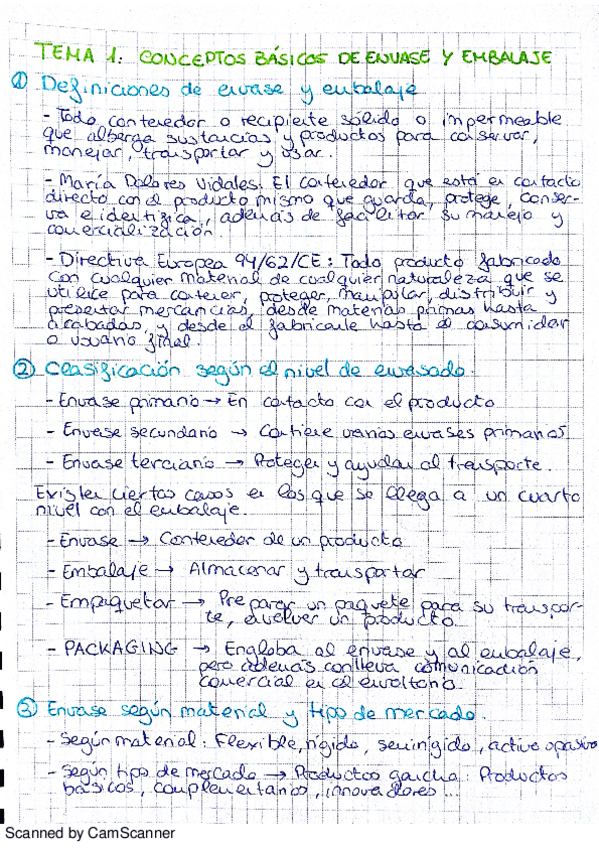 TEMA 1: CONCEPTOS BÁSICOS DE ENVASE Y EMBALAJE
① Definiciones de envase y embalaje
- Todo contenedor o recipiente sólido o impermeable
que alberga sustancias y productos para conservar,
manejar, transportar y usar.
- María Dolores Vidales: El contenedor que está en contacto
directo con el producto mismo que guarda, protege, conser-
va e identifica, además de facilitar su manejo y
comercialización.
- Directiva Europea 94/62/CE: Todo producto fabricado
con cualquier material de cualquier naturaleza que se
utilice para contener, proteger, manipular, distribuir y
presentar mercancías, desde materias primas hasta
acabadas, y desde el fabricante hasta el consumidor
o usuario final.
② Clasificación según el nivel de envasado.
- Envase primario → En contacto con el producto
- Envase secundario → Contiene varios envases primarios
- Envase terciario → Proteger y ayudar al transporte.
Existen ciertos casos en los que se llega a un cuarto
nivel con el embalaje.
- Envase → Contenedor de un producto
- Embalaje → Almacenar y transportar
- Empaquetar → Preparar un paquete para su transpor-
te, envolver un producto.
- PACKAGING → Engloba al envase y al embalaje,
pero además conlleva comunicación
comercial en el envoltorio.
③ Envase según material y tipo de mercado.
- Según material: Flexible, rígido, semirígido, activo o pasivo
- Según tipo de mercado → Productos gancho: Productos
básicos, complementarios, innovadores...
Scanned by CamScanner